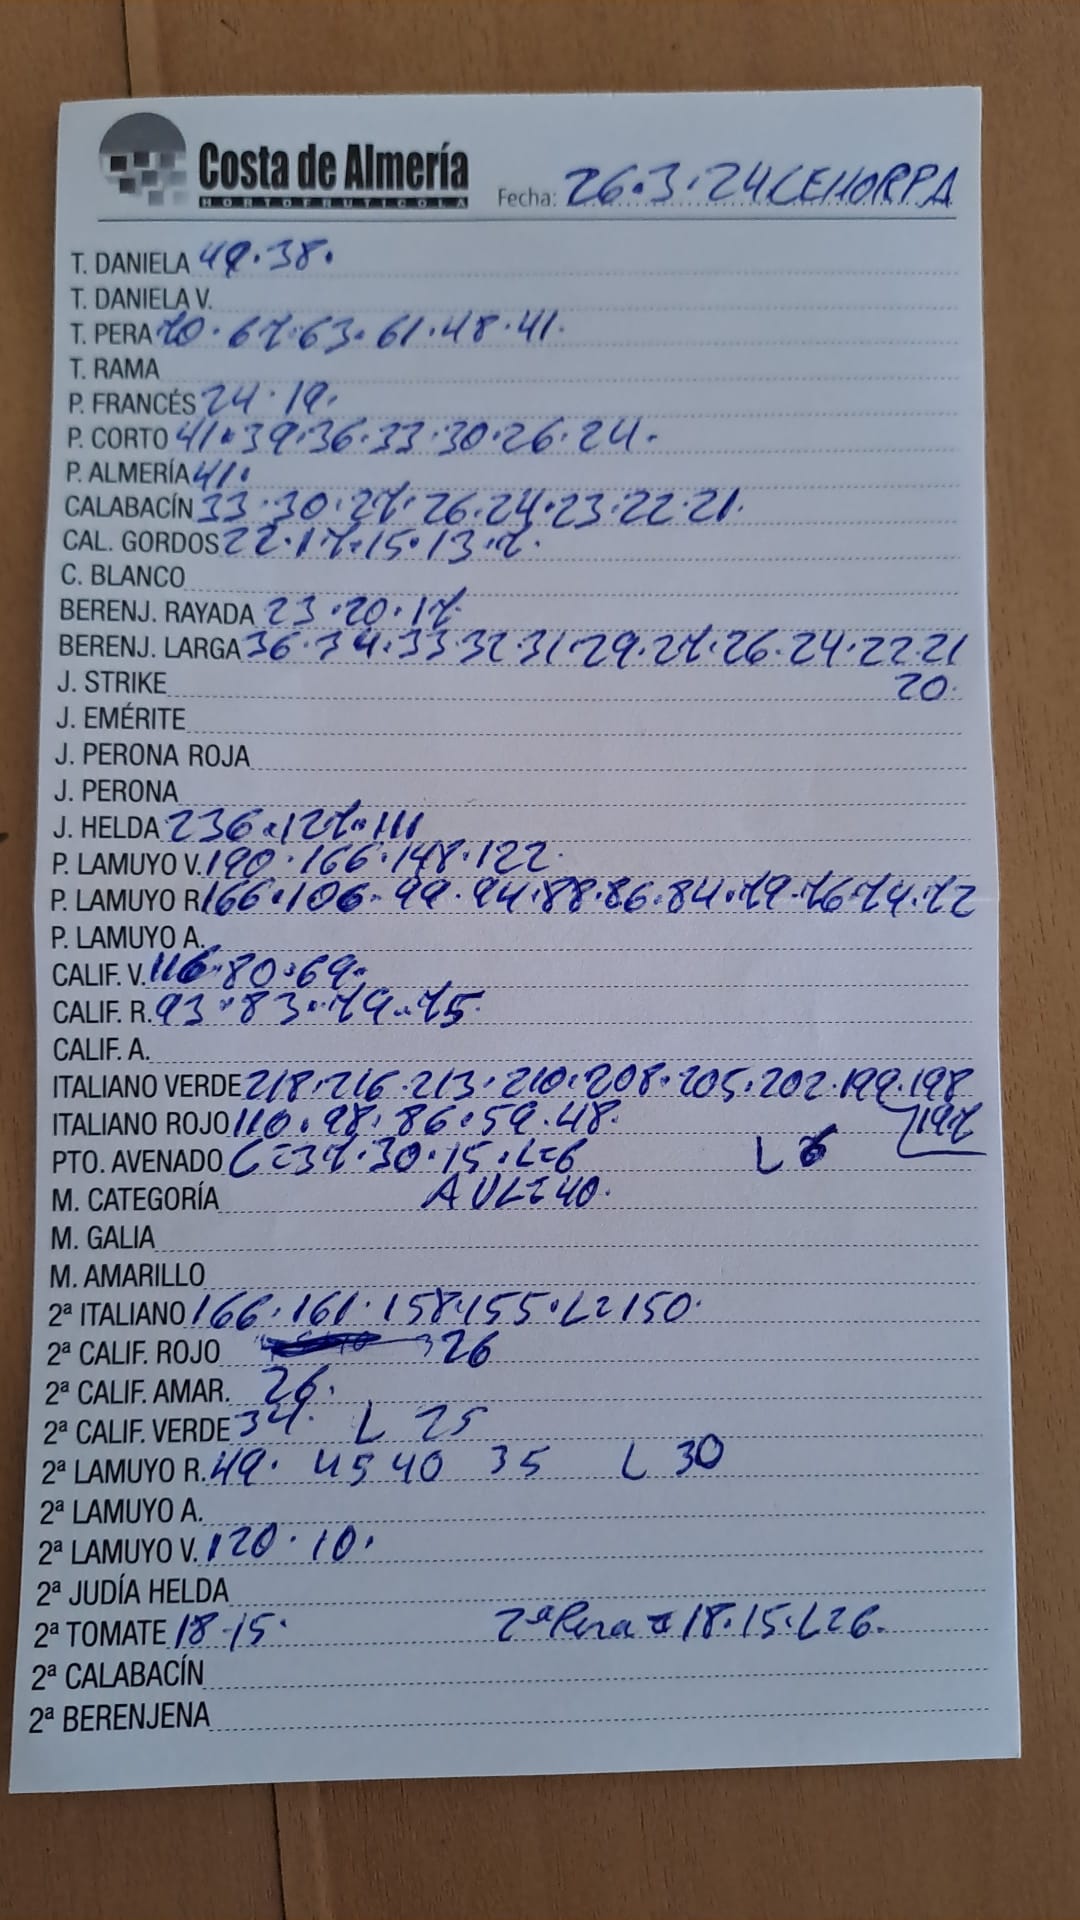 Costa de Almería
HORTOFRUTICOLA
Fecha: 26.3.24 CEHORPA
T. DANIELA 49.38.
T. DANIELA V.
T. PERA 70.67.63.61.48.41.
T. RAMA
P. FRANCÉS 24.19.
P. CORTO 41.39.36.33.30.26.24.
P. ALMERÍA 41.
CALABACÍN 33.30.27.26.24.23.22.21.
CAL. GORDOS 22.17.15.13.7.
C. BLANCO
BERENJ. RAYADA 23.20.17.
BERENJ. LARGA 36.34.33.32.31.29.27.26.24.22.21
20.
J. STRIKE
J. EMÉRITE
J. PERONA ROJA
J. PERONA
J. HELDA 236.127.111
P. LAMUYO V. 190.166.148.122.
P. LAMUYO R. 166.106.99.94.88.86.84.79.76.74.72
P. LAMUYO A.
CALIF. V. 116.80.69.
CALIF. R. 93.83.79.75.
CALIF. A.
ITALIANO VERDE 218.216.213.210.208.205.202.199.198
197
ITALIANO ROJO 110.98.86.59.48.
PTO. AVENADO C=37.30.15.L=6 L 6
M. CATEGORÍA A UL=40.
M. GALIA
M. AMARILLO
2ª ITALIANO 166.161.158.155.L=150.
2ª CALIF. ROJO 26
2ª CALIF. AMAR. 26.
2ª CALIF. VERDE 34. L 25
2ª LAMUYO R. 49. 45 40 35 L 30
2ª LAMUYO A.
2ª LAMUYO V. 120.10.
2ª JUDÍA HELDA
2ª TOMATE 18.15. 2ª Pera = 18.15.L=6.
2ª CALABACÍN
2ª BERENJENA